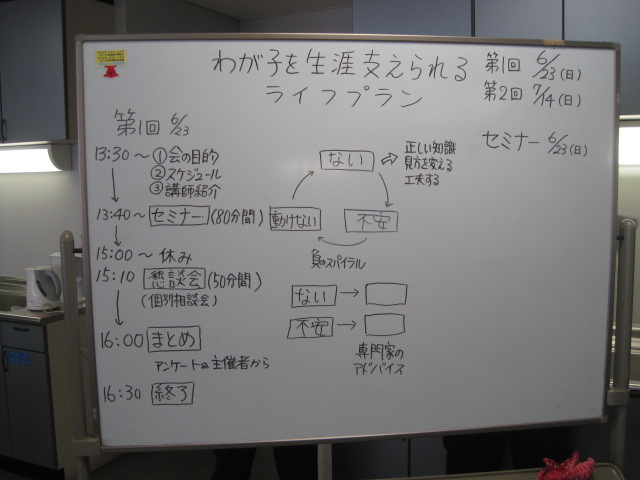 わが子を生涯支えられる
ライフプラン
第1回 6/23(日)
第2回 7/14(日)
セミナー 6/23(日)
第1回 6/23
13:30〜 ①会の目的
②スケジュール
③講師紹介
13:40〜 セミナー (80分間)
15:00〜 休み
15:10 懇談会 (50分間)
(個別相談会)
16:00 まとめ
アンケート 主催者から
16:30 終了
ない
正しい知識
見方を変える
工夫する
動けない
不安
負のスパイラル
ない
不安
専門家の
アドバイス